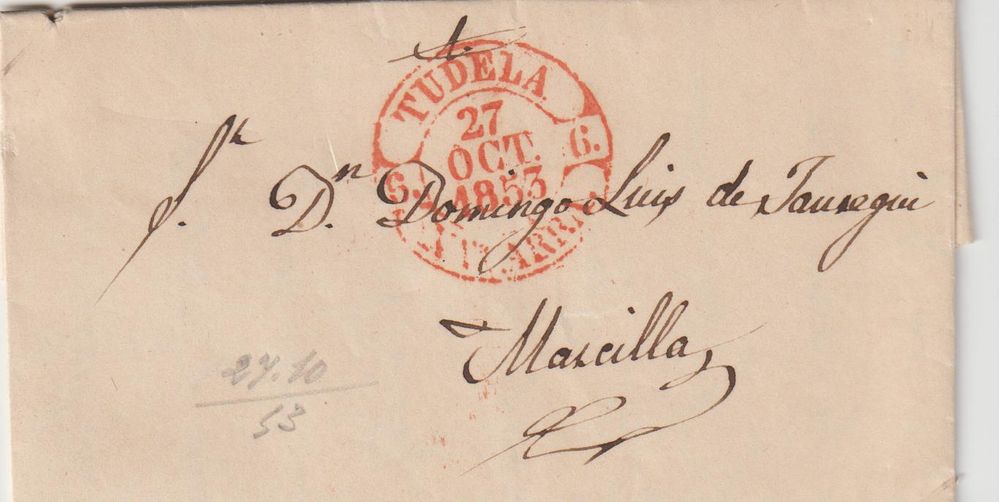 A.
TUDELA
27
OCT.
1853
6.
6.
NAVARRA
S.r D.n Domingo Luis de Jauregui
Marcilla
27.10
53